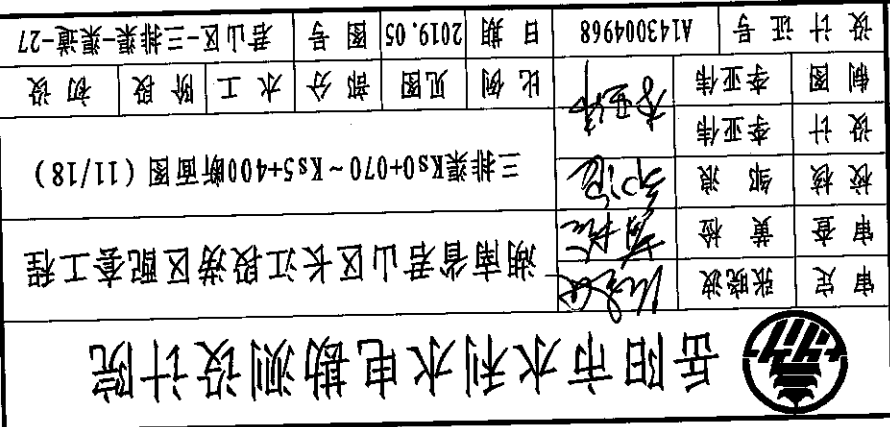 岳阳市水利水电勘测设计院
审定 张晓波 湖南省君山区长江段涝区配套工程
审查 黄检
校核 邹浪 三排渠Ks0+070~Ks5+400断面图(11/18)
设计 李亚伟
制图 李亚伟 比例 见图 部分 水工 阶段 初设
设计证号 A143004968 日期 2019.05 图号 君山区-三排渠-渠道-27